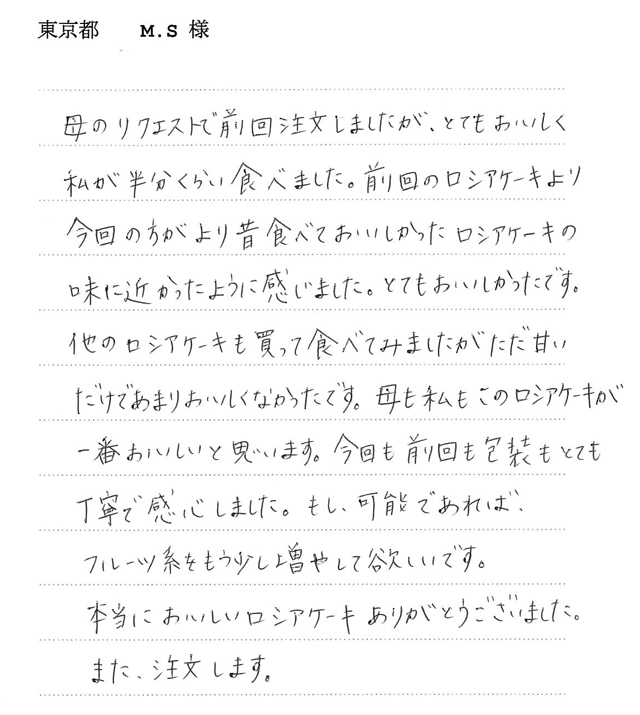 東京都 M.S 様
母のリクエストで前回注文しましたが、とてもおいしく
私が半分くらい食べました。前回のロシアケーキより
今回の方がより昔食べておいしかったロシアケーキの
味に近かったように感じました。とてもおいしかったです。
他のロシアケーキも買って食べてみましたがただ甘い
だけであまりおいしくなかったです。母も私もこのロシアケーキが
一番おいしいと思います。今回も前回も包装もとても
丁寧で感心しました。もし、可能であれば、
フルーツ系をもう少し増やして欲しいです。
本当においしいロシアケーキありがとうございました。
また、注文します。